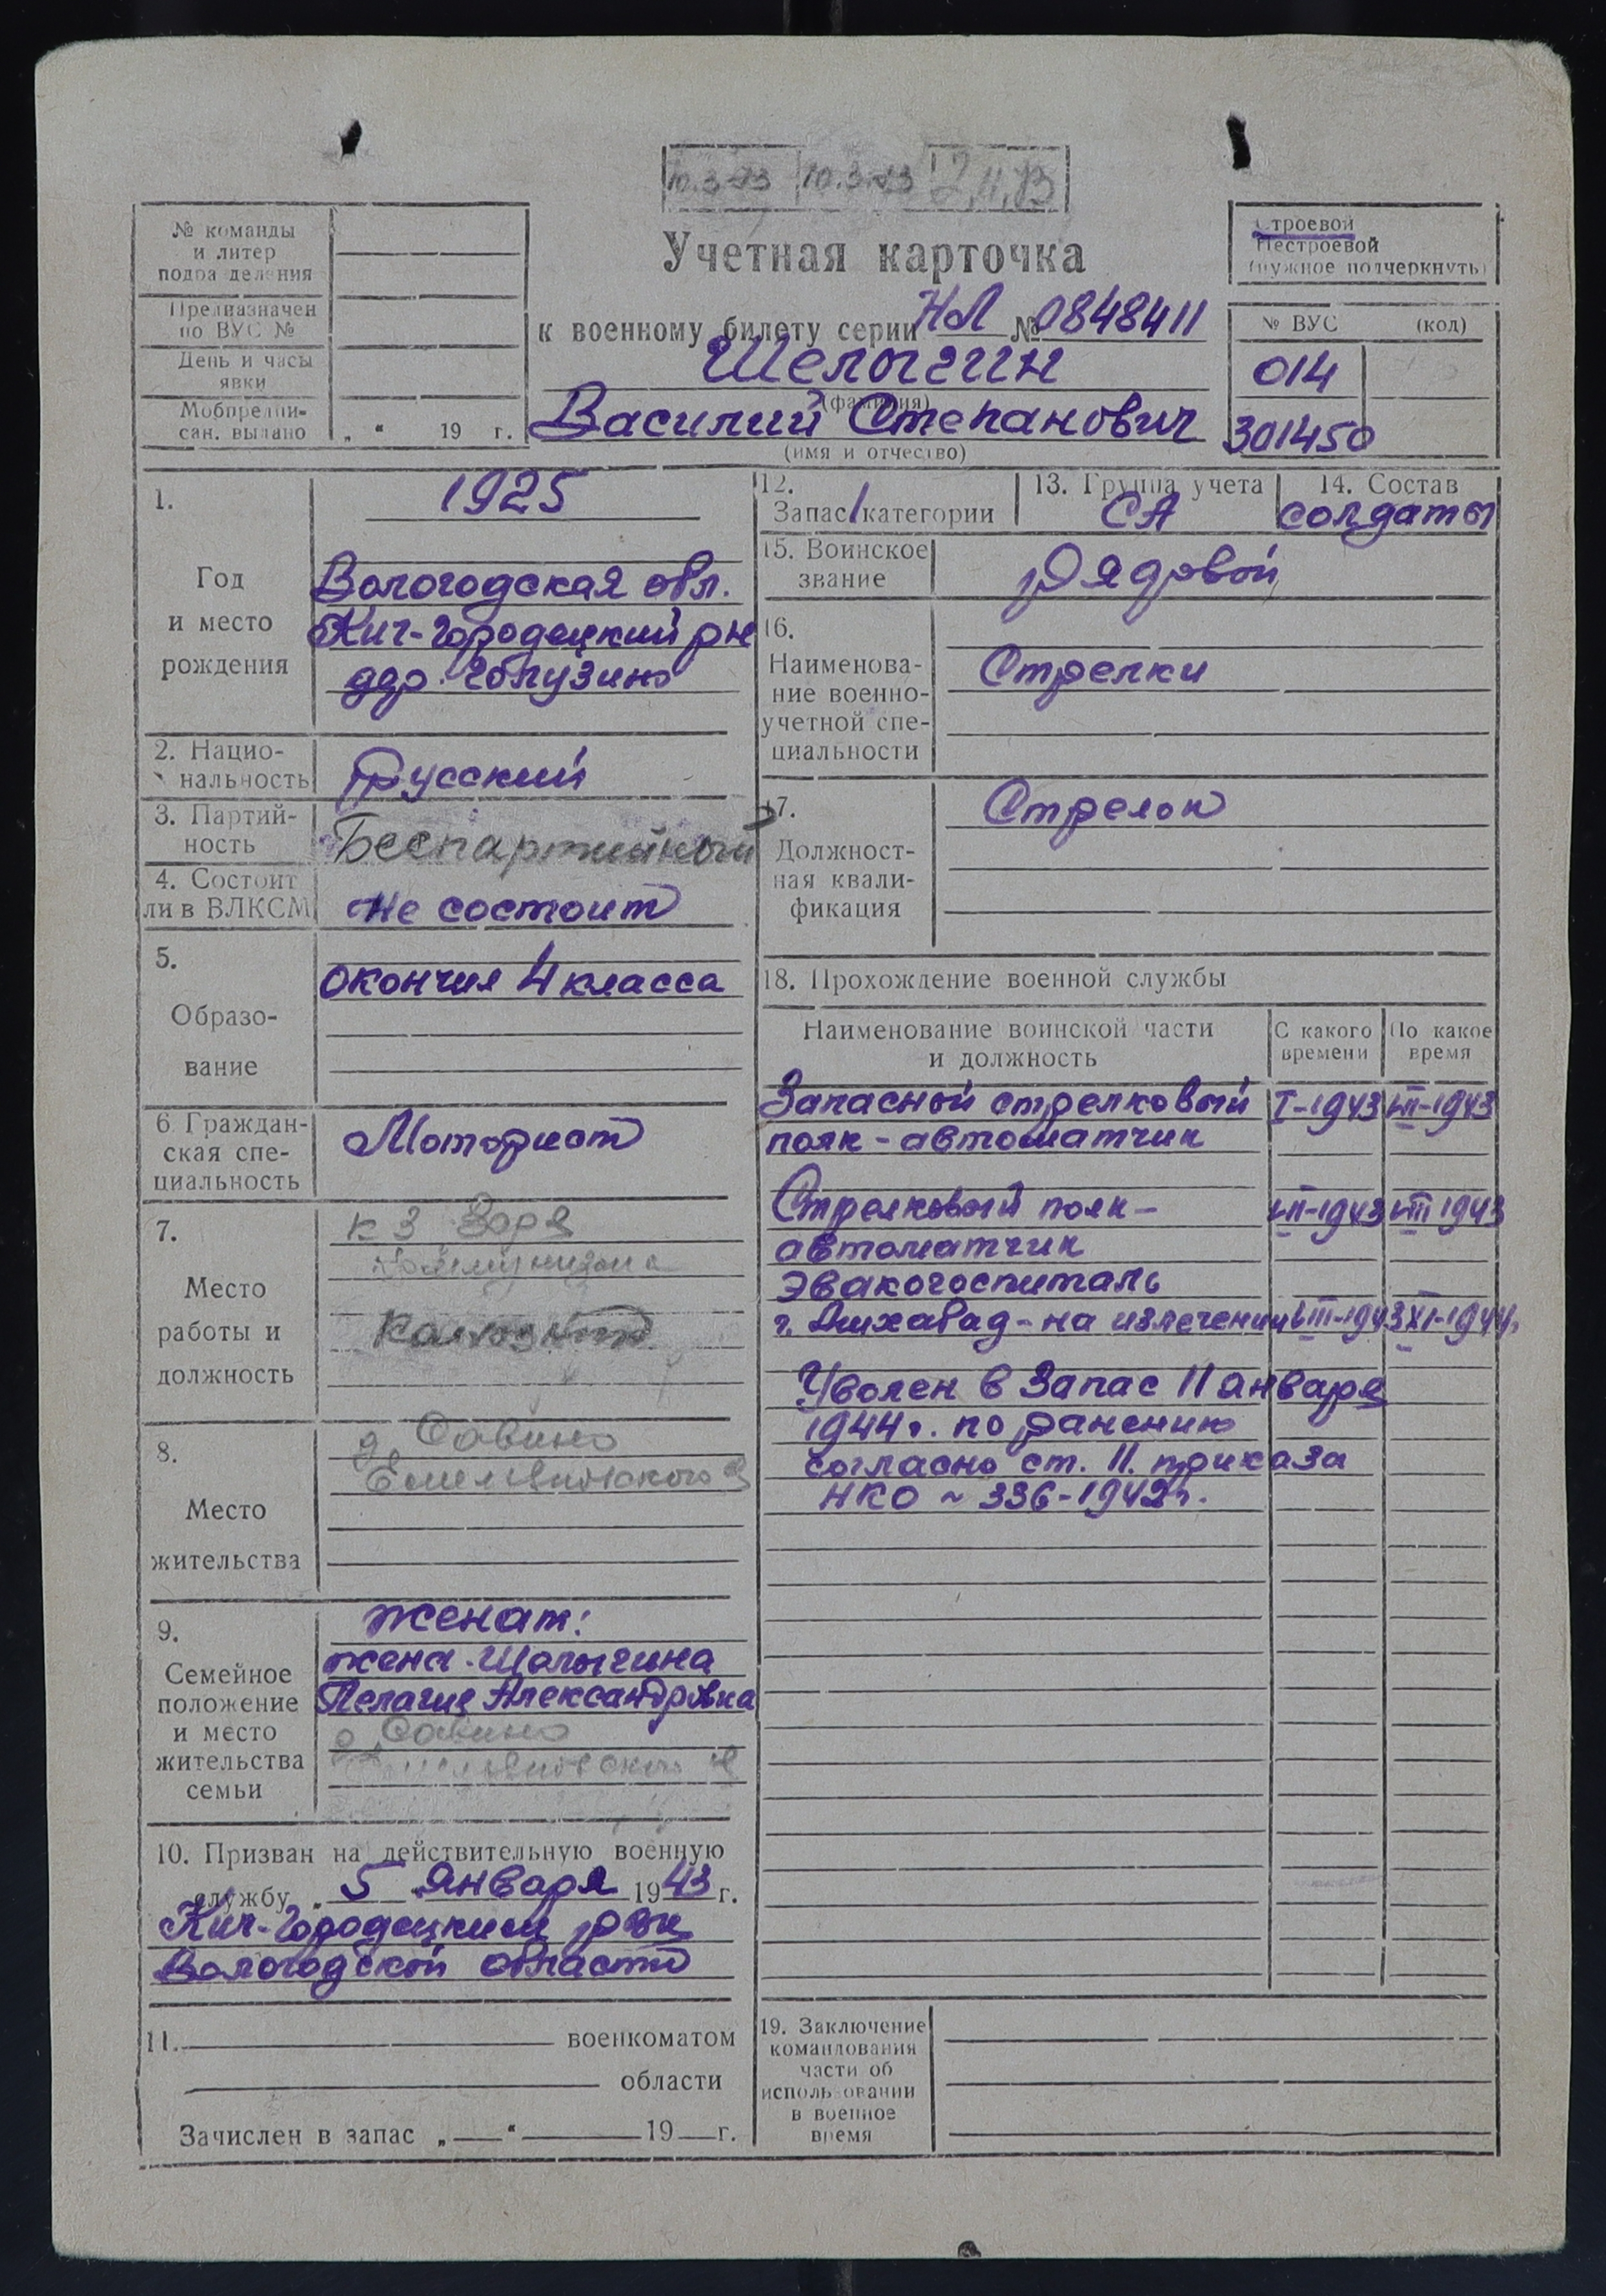 10.3-73 10.3.73
№ команды
и литер
подразделения
Предназначен
по ВУС №
День и часы
явки
Мобпредпи-
сан. выдано „ “ 19 г.
Учетная карточка
к военному билету серии НЛ № 0848411
Шелыгин
(фамилия)
Василий Степанович
(имя и отчество)
Строевой
Нестроевой
(нужное подчеркнуть)
№ ВУС (код)
014
301450
1.
Год
и место
рождения
1925
Вологодская обл.
Кич-Городецкий рн
дер.
2. Нацио-
нальность
Русский
3. Партий-
ность
Беспартийный
4. Состоит
ли в ВЛКСМ
Не состоит
5.
Образо-
вание
окончил 4 класса
6. Граждан-
ская спе-
циальность
Моторист
7.
Место
работы и
должность
к з Заря
Коммунизма
8.
Место
жительства
д. Савино
Емельяновского
9.
Семейное
положение
и место
жительства
семьи
женат:
жена - Шалыгина
Пелагия Александровна
д. Савино
Емельяновского
10. Призван на действительную военную
службу „ 5 января 1943 г.
Кич-Городецким рвк
Вологодской области
11. военкоматом
области
Зачислен в запас „ “ 19 г.
12.
Запас 1 категории
13. Группа учета
СА
14. Состав
солдаты
15. Воинское
звание
Рядовой
16.
Наименова-
ние военно-
учетной спе-
циальности
Стрелки
17.
Должност-
ная квали-
фикация
Стрелок
18. Прохождение военной службы
Наименование воинской части
и должность
С какого
времени
По какое
время
Запасной стрелковый I-1943 VII-1943
полк - автоматчик
Стрелковый полк - VII-1943 VIII 1943
автоматчик
Эвакогоспиталь
г. Ашхабад - на излечении VIII-1943 XI-1944
Уволен в Запас 11 января
1944 г. по ранению
согласно ст. 11. приказа
НКО ~ 336-1942 г.
19. Заключение
командования
части об
использовании
в военное
время